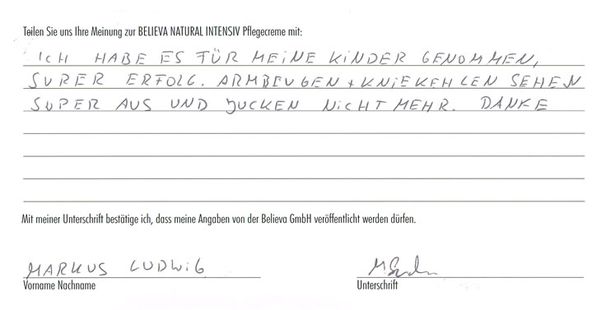 Teilen Sie uns Ihre Meinung zur BELIEVA NATURAL INTENSIV Pflegecreme mit:
ICH HABE ES FÜR MEINE KINDER GENOMMEN,
SUPER ERFOLG. ARMBEUGEN + KNIEKEHLEN SEHEN
SUPER AUS UND JUCKEN NICHT MEHR. DANKE
Mit meiner Unterschrift bestätige ich, dass meine Angaben von der Believa GmbH veröffentlicht werden dürfen.
MARKUS LUDWIG
Vorname Nachname
Unterschrift